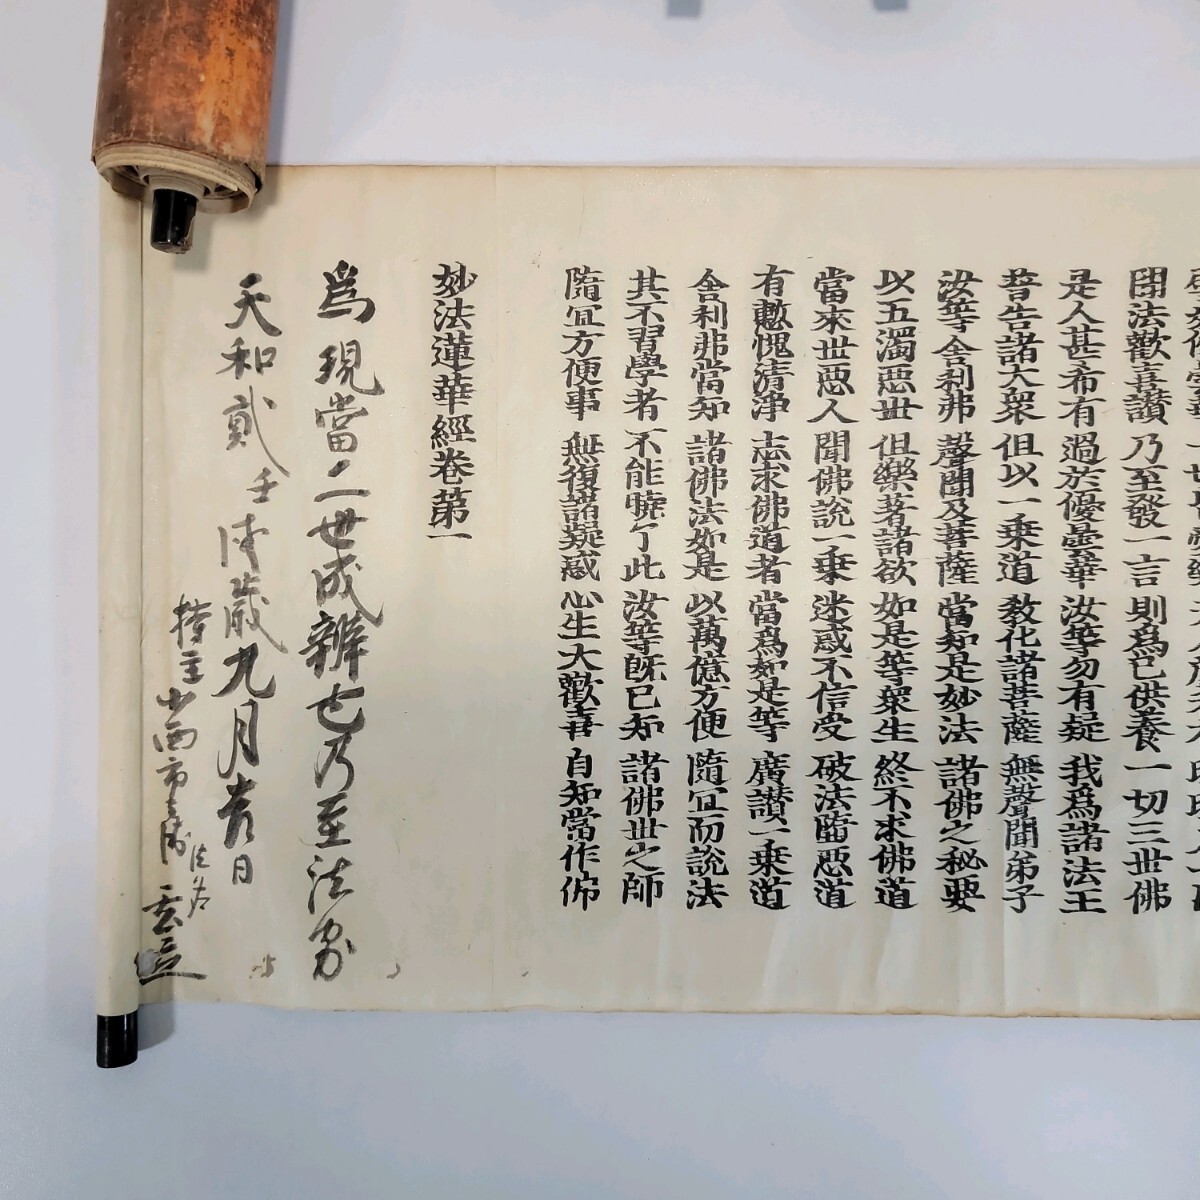 聞法歡喜讃 乃至發一言 則爲已供養 一切三世佛
是人甚希有 過於優曇華 汝等勿有疑 我爲諸法王
普告諸大衆 但以一乗道 教化諸菩薩 無聲聞弟子
汝等舎利弗 聲聞及菩薩 當知是妙法 諸佛之秘要
以五濁惡世 但樂著諸欲 如是等衆生 終不求佛道
當來世惡人 聞佛説一乗 迷惑不信受 破法墮惡道
有慙愧清浄 志求佛道者 當爲如是等 廣讃一乗道
舎利弗當知 諸佛法如是 以萬億方便 隨冝而説法
其不習學者 不能曉了此 汝等既已知 諸佛世之師
隨冝方便事 無復諸疑惑 心生大歡喜 自知當作佛
妙法蓮華經卷第一
爲現當二世成辨也乃至法界
天和貳壬戌歳九月吉日
持主小西市 法名